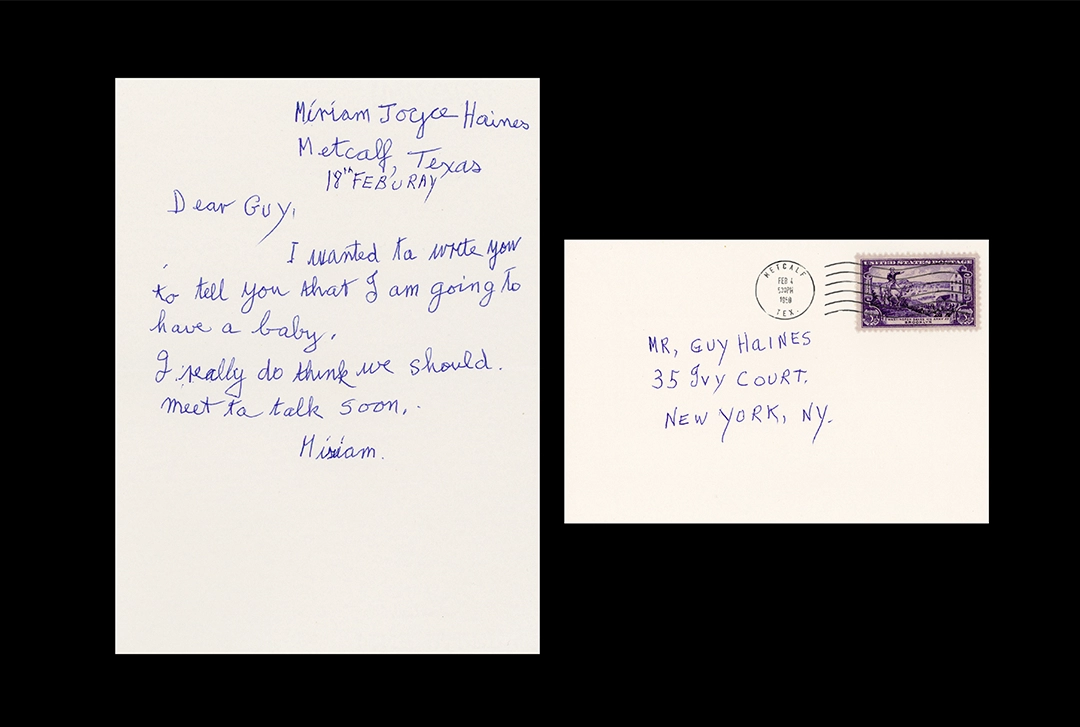 Miriam Joyce Haines
Metcalf, Texas
18th FEBURAY
Dear Guy,
I wanted to write you
to tell you that I am going to
have a baby.
I really do think we should.
meet to talk soon..
Miriam.
METCALF
FEB 4
1950
TEX.
UNITED STATES POSTAGE
BROOKLYN
MR, GUY HAINES
35 Ivy COURT.
NEW YORK, NY.